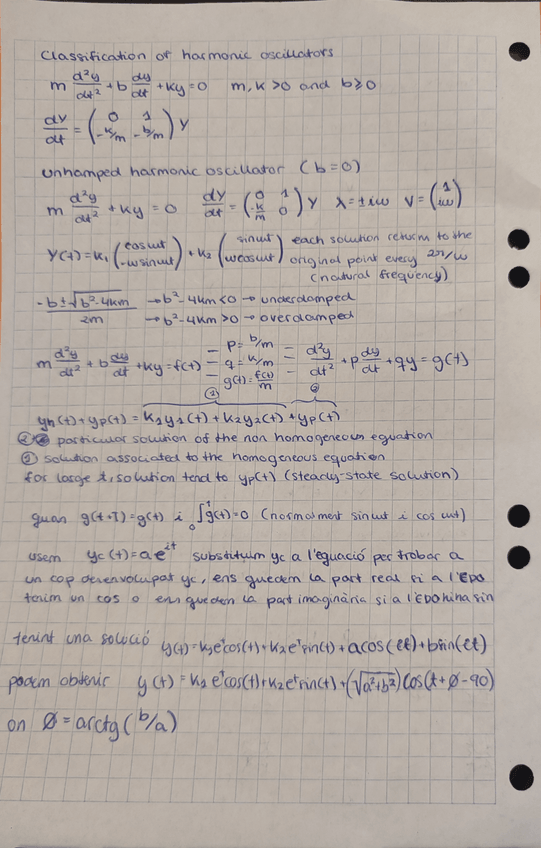 Classification of harmonic oscillators
m d²y/dt² + b dy/dt + Ky = 0   m, k >0 and b≥0
dY/dt = ( 0 1 -K/m -b/m ) Y
Unhamped harmonic oscillator ( b=0)
m d²y/dt² + Ky = 0   dY/dt = ( 0 1 -K/m 0 ) Y   λ=±iω   V = ( 1 iω )
Y(t) = K₁ ( cosωt -ωsinωt ) + K₂ ( sinωt ωcosωt ) each solution return to the
original point every 2π/ω
(natural frequency)
-b±√(b²-4km) / 2m → b²-4km<0 → underdamped
→ b²-4km >0 → overdamped
m d²y/dt² + b dy/dt + Ky = f(t) = p= b/m = q= K/m = g(t)= f(t)/m = d²y/dt² + p dy/dt + qy = g(t)
yh(t) + yp(t) = K₁y₁(t) + K₂y₂(t) + yp(t)
② particular solution of the non homogeneous equation
① solution associated to the homogeneous equation
for large t, solution tend to yp(t) (steady-state solution)
quan g(t+T)=g(t) i ∫₀¹ g(t)=0 (normalment sinωt i cos ωt)
usem yc(t)=ae^it substituim yc a l'equació per trobar a
un cop desenvolupat yc, ens quedem la part real si a l'EDO
tenim un cos o ens quedem la part imaginària si a l'EDO hi ha sin
tenint una solució y(t)=K₁e^t cos(t)+K₂e^t sin(t)+acos(lt)+bsin(lt)
podem obtenir y(t)=K₁ e^t cos(t)+K₂e^t sin(t)+(√a²+b²) Cos(t+Ø-90)
on Ø=arctg(b/a)